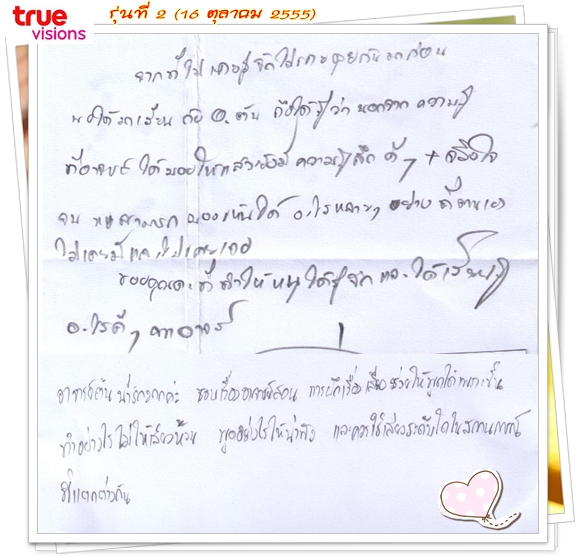 true
visions
รุ่นที่ 2 (16 ตุลาคม 2555)
จากที่ไม่เคยรู้จักไม่เคยคุยกันมาก่อน
พอได้มาเรียน กับ อ.ต้น ถึงได้รู้ว่า นอกจาก ความรู้
ที่อาจารย์ ได้มอบให้แล้วยังมี ความรู้สึก ดีๆ + จริงใจ
จน หนูสามารถ มองเห็นได้ อะไรหลายๆ อย่าง ที่
ไม่เคยมีและไม่เคยเจอ
ขอบคุณนะ ที่ ทำให้หนูได้รู้จัก และได้เรียนรู้
อะไรดีๆ จากอาจารย์
อาจารย์ต้นน่ารักมากค่ะ ชอบเรื่องอาจารย์สอน การฝึกเรื่องเสียงช่วยให้พูดได้เพราะขึ้น
ทำอย่างไรไม่ให้เสียงห้วน พูดอย่างไรให้น่าฟัง และควรใช้เสียงระดับใดในสถานการณ์
ที่แตกต่างกัน